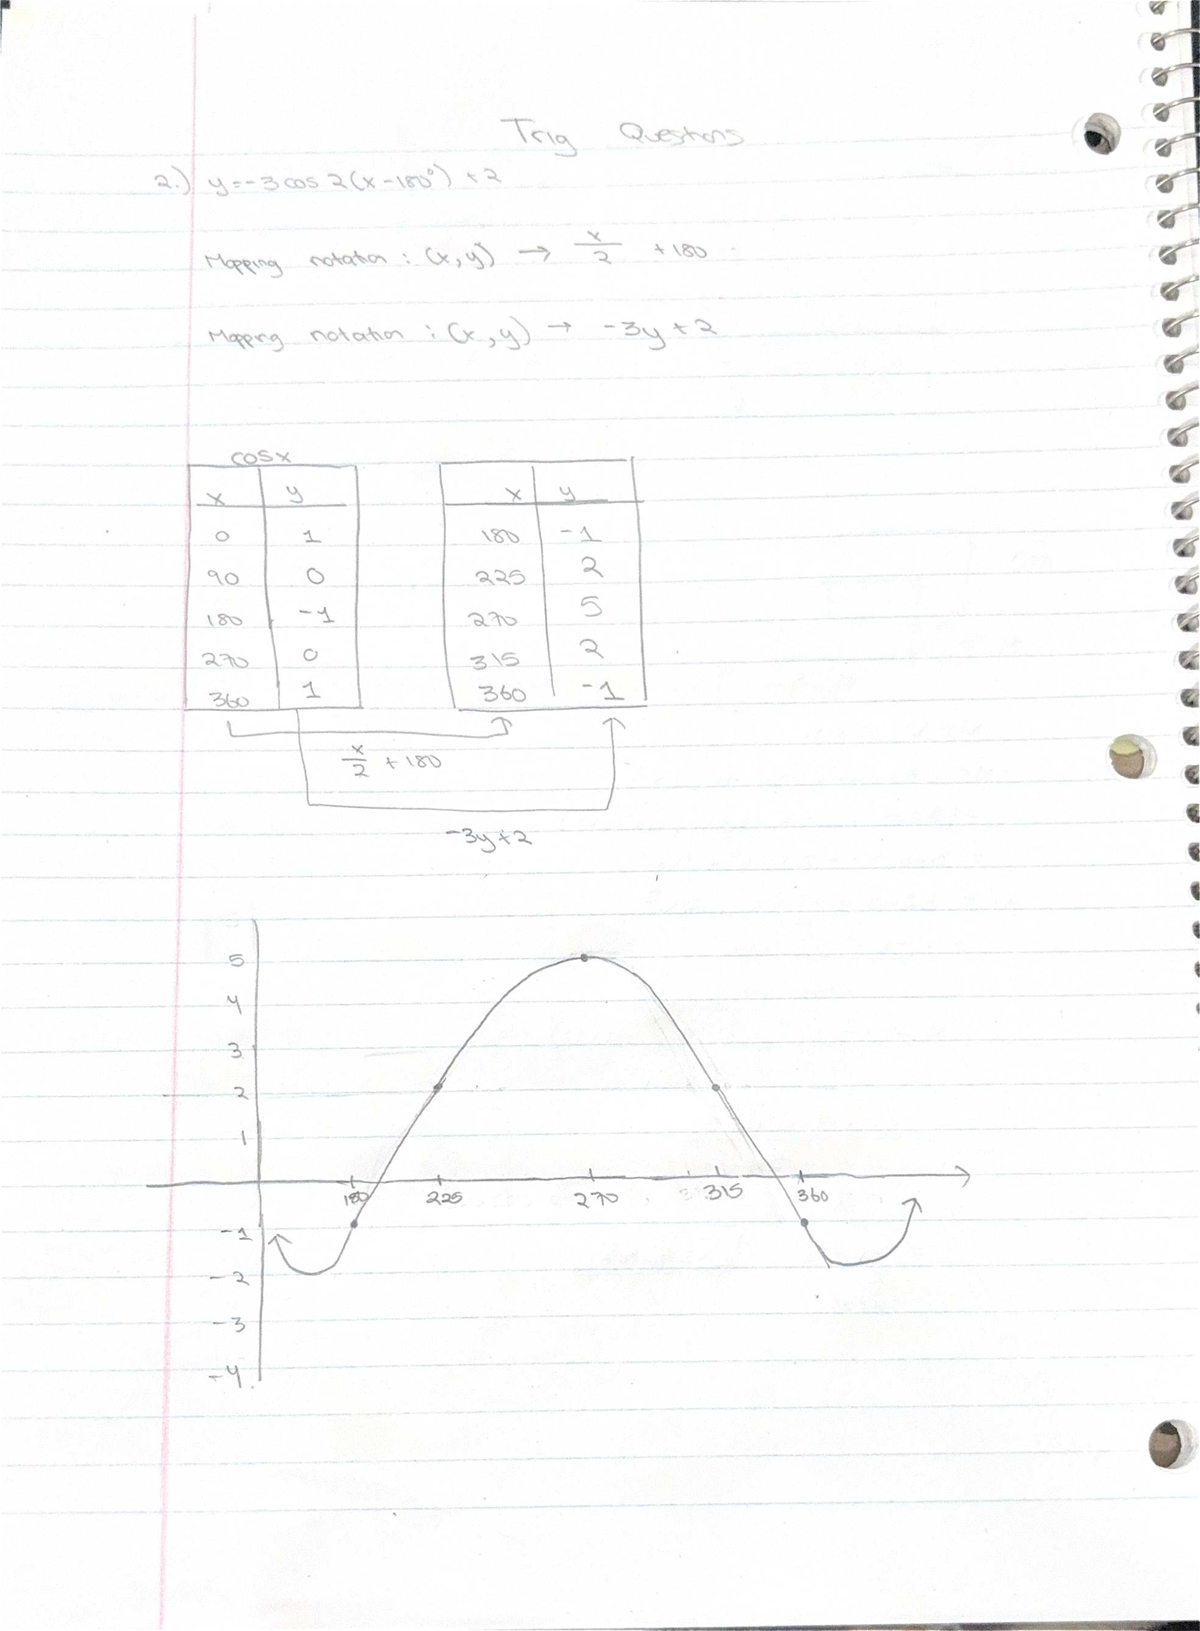 Trig Questions
2.) y=-3 cos 2(x-180°) +2
Mapping notation : (x,y) → x/2 +180
Mapping notation : (x,y) → -3y+2
cosx
x y x y
0 1 180 -1
90 0 225 2
180 -1 270 5
270 0 315 2
360 1 360 -1
x/2 +180
-3y+2
5
4
3
2
1
180 225 270 315 360
-1
-2
-3
-4